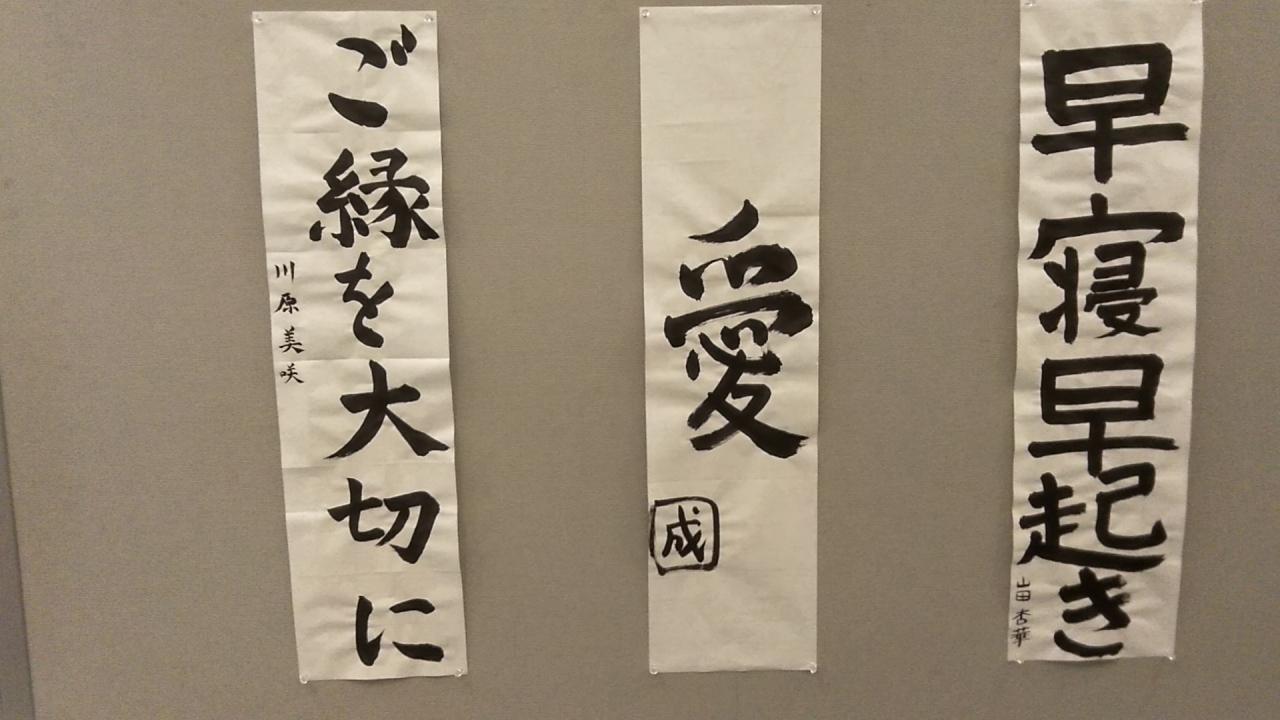 ご縁を大切に
川原美咲
愛
成
早寝早起き
山田杏華